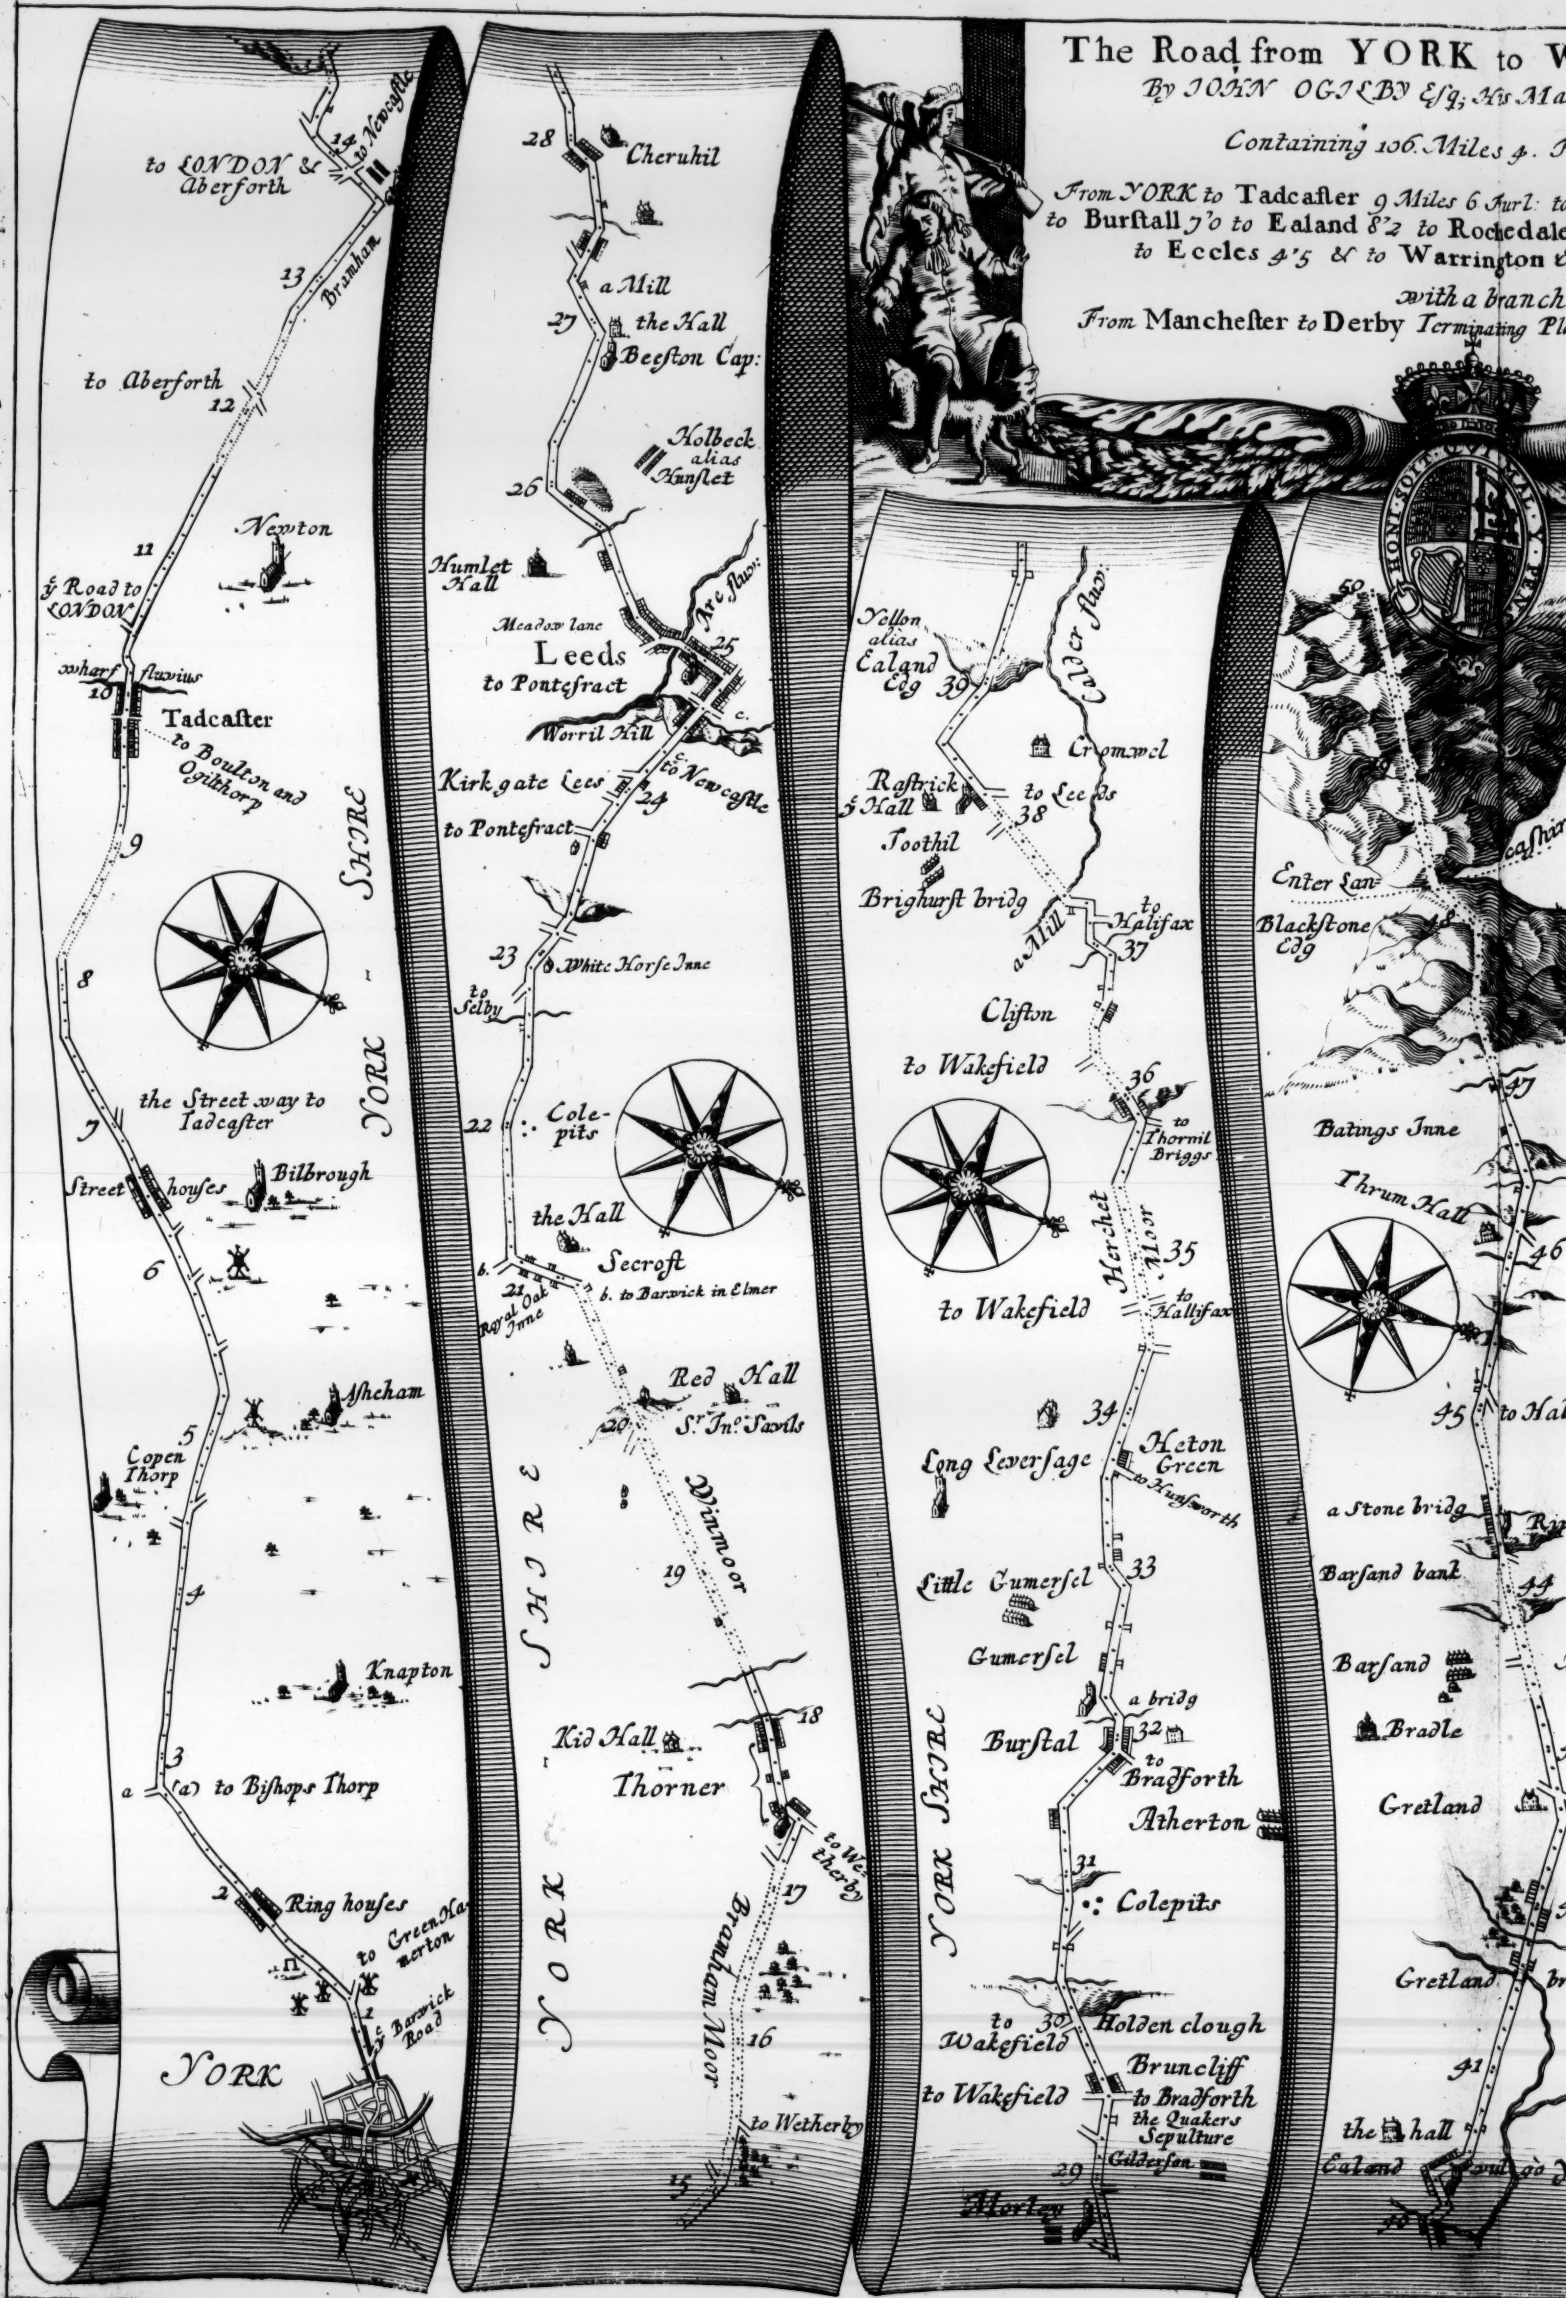 The Road from YORK to W
By IOHN OGILBY Esq; His Ma
Containing 106. Miles 4.
From YORK to Tadcaster 9 Miles 6 Furl: to
to Burstall 7'0 to Ealand 8'2 to Rochedale
to Eccles 4'5 & to Warrington
with a branch
From Manchester to Derby Terminating Pl
HONI·SOIT·QVI·MAL·Y·PEN
to Newcastle
14
to LONDON &
Aberforth
13
Bramham
to Aberforth
12
Newton
11
ye Road to
LONDON
wharf fluvius
10
Tadcaster
to Boulton and
Ogilthorp
9
YORK - SHIRE
8
the Street way to
Tadcaster
7
Street houses
Bilbrough
6
Asheham
5
Copen
Thorp
4
Knapton
3
a (a) to Bishops Thorp
2
Ring houses
to Green Ha-
merton
1
ye Barwick
Road
YORK
28
Cheruhil
a Mill
27
the Hall
Beeston Cap:
Holbeck
alias
Hunslet
26
Humlet
Hall
Are fluv:
Meadow lane
25
Leeds
to Pontefract
c.
Worril Hill
c to Newcastle
Kirkgate Lees
24
to Pontefract
23
White Horse Inne
to
Selby
22
Cole-
pits
the Hall
Secroft
b.
21
Royal Oak
Inne
b. to Barwick in Elmer
Red Hall
20
Sr. Jno. Savils
Winmoor
19
18
Kid Hall
Thorner
to We-
therby
17
Bramham Moor
16
to Wetherby
15
YORK - SHIRE
Calder fluv:
Yellon
alias
Ealand
Edg
39
Cromwel
Rastrick
ye Hall
to Leeds
38
Toothil
Brighurst bridg
a Mill
to
Halifax
37
Clifton
to Wakefield
36
to
Thornil
Briggs
Herchet Moor
35
to Wakefield
to
Hallifax
34
Long Leversage
Heton
Green
to Hunsworth
Little Gumersel
33
Gumersel
a bridg
Burstal
32
to
Bradforth
Atherton
31
Colepits
YORK SHIRE
30
to
Wakefield
Holden clough
Bruncliff
to Wakefield
to Bradforth
the Quakers
Sepulture
Gilderson
29
Morley
50
49
Enter Lan=
cashir
Blackstone
Edg
48
47
Batings Inne
Thrum Hall
46
45
to Hal
a Stone bridg
Barsand bank
44
Barsand
Bradle
Gretland
Gretland br
41
the hall
Ealand
40